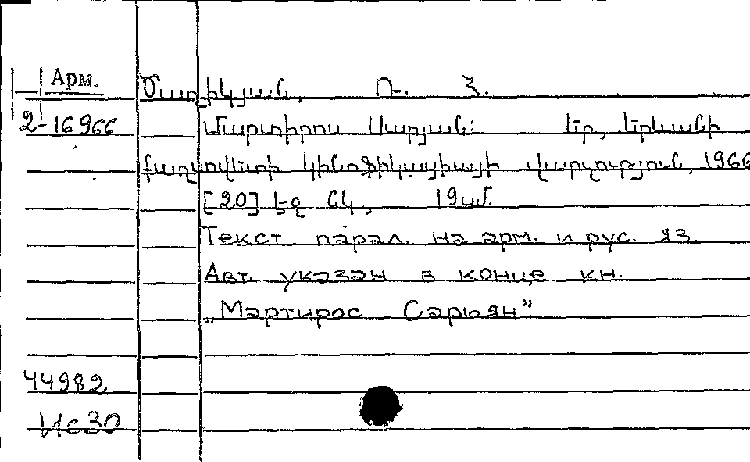 Арм. Ծաղիկյան, Ռ. Հ.
2-16966 Մարտիրոս Սարյան: Եր., Երևանի
քաղսովետի կինոֆիկացիայի վարչություն, 1966
[20] էջ նկ., 19սմ.
Текст парал. на арм. и рус. яз.
Авт. указан в конце кн.
„Мартирос Сарьян”
44982
Ис30